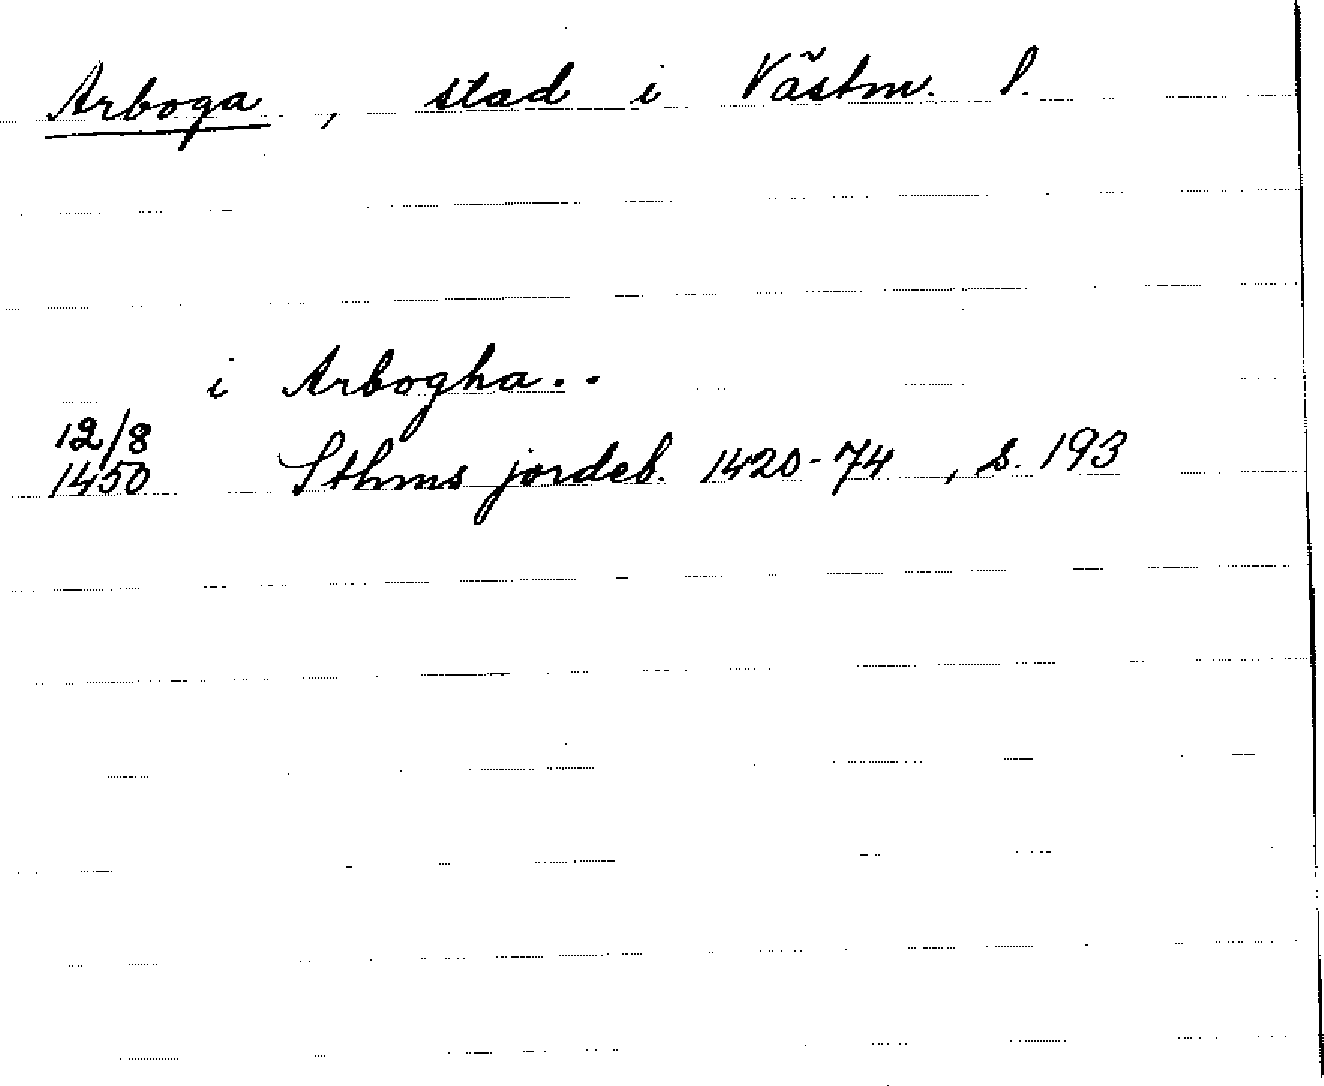 Arboga, stad i Västm. l.
i Arbogha..
12/8
1450 Sthms jordeb. 1420-74, s. 193